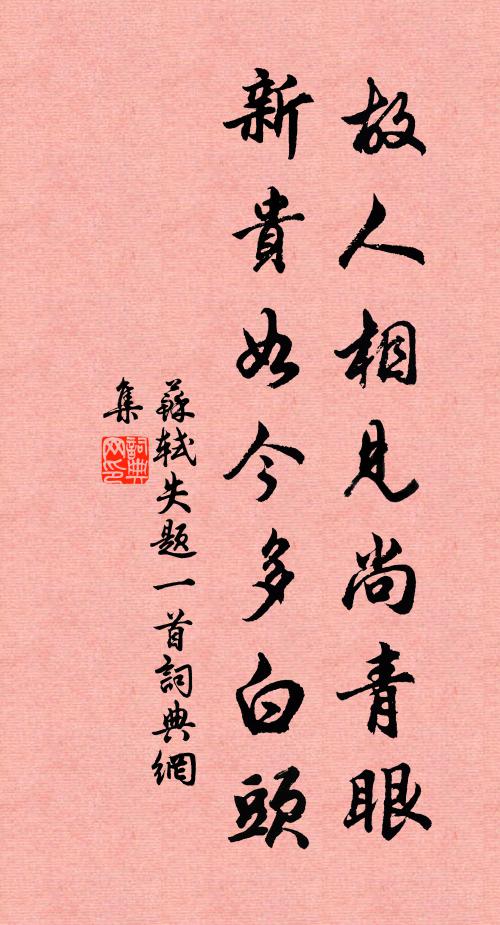 故人相見尚青眼
新貴如今多白頭
蘇軾失題一首詞典網
集
詞典网印